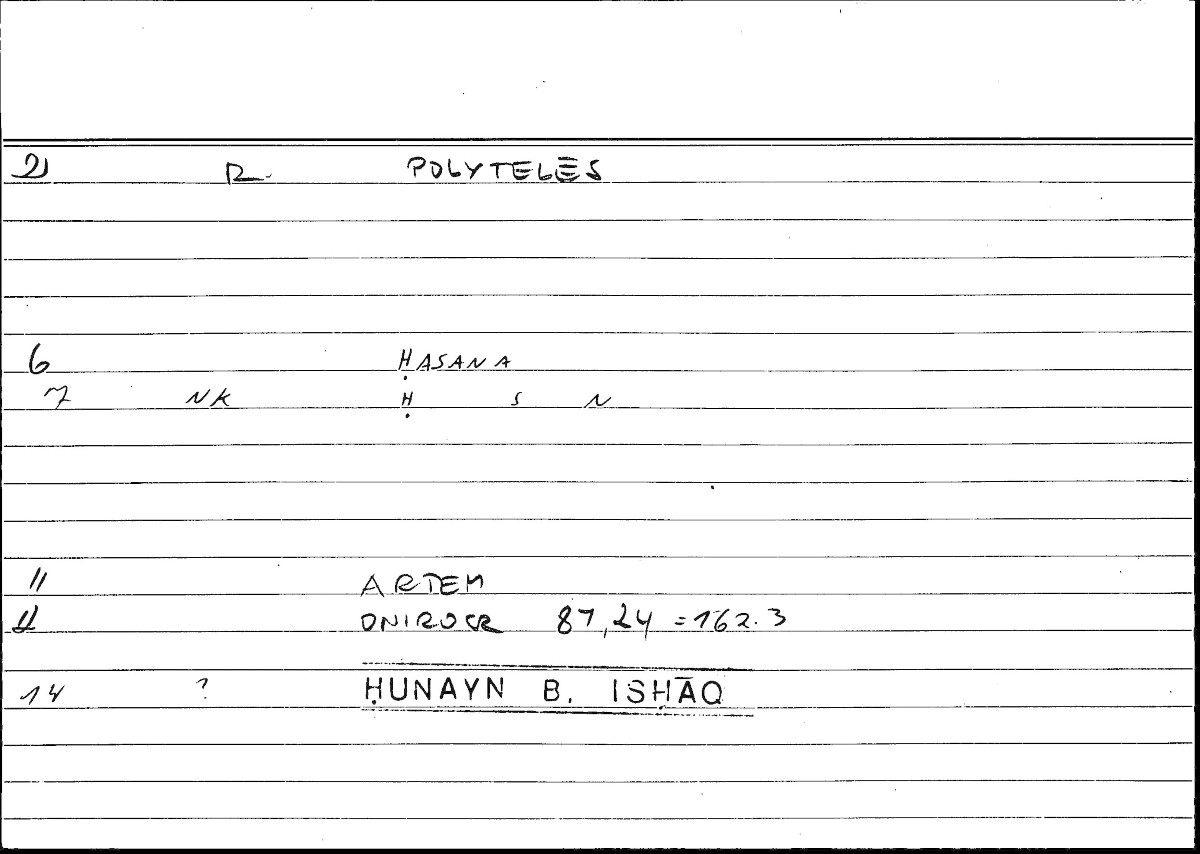 2) R. POLYTELĒS
6 ḤASANA
7 NK Ḥ S N
11 ARTEM
12 ONIROCR 87,24 =162.3
14 ? ḤUNAYN B. ISḤĀQ